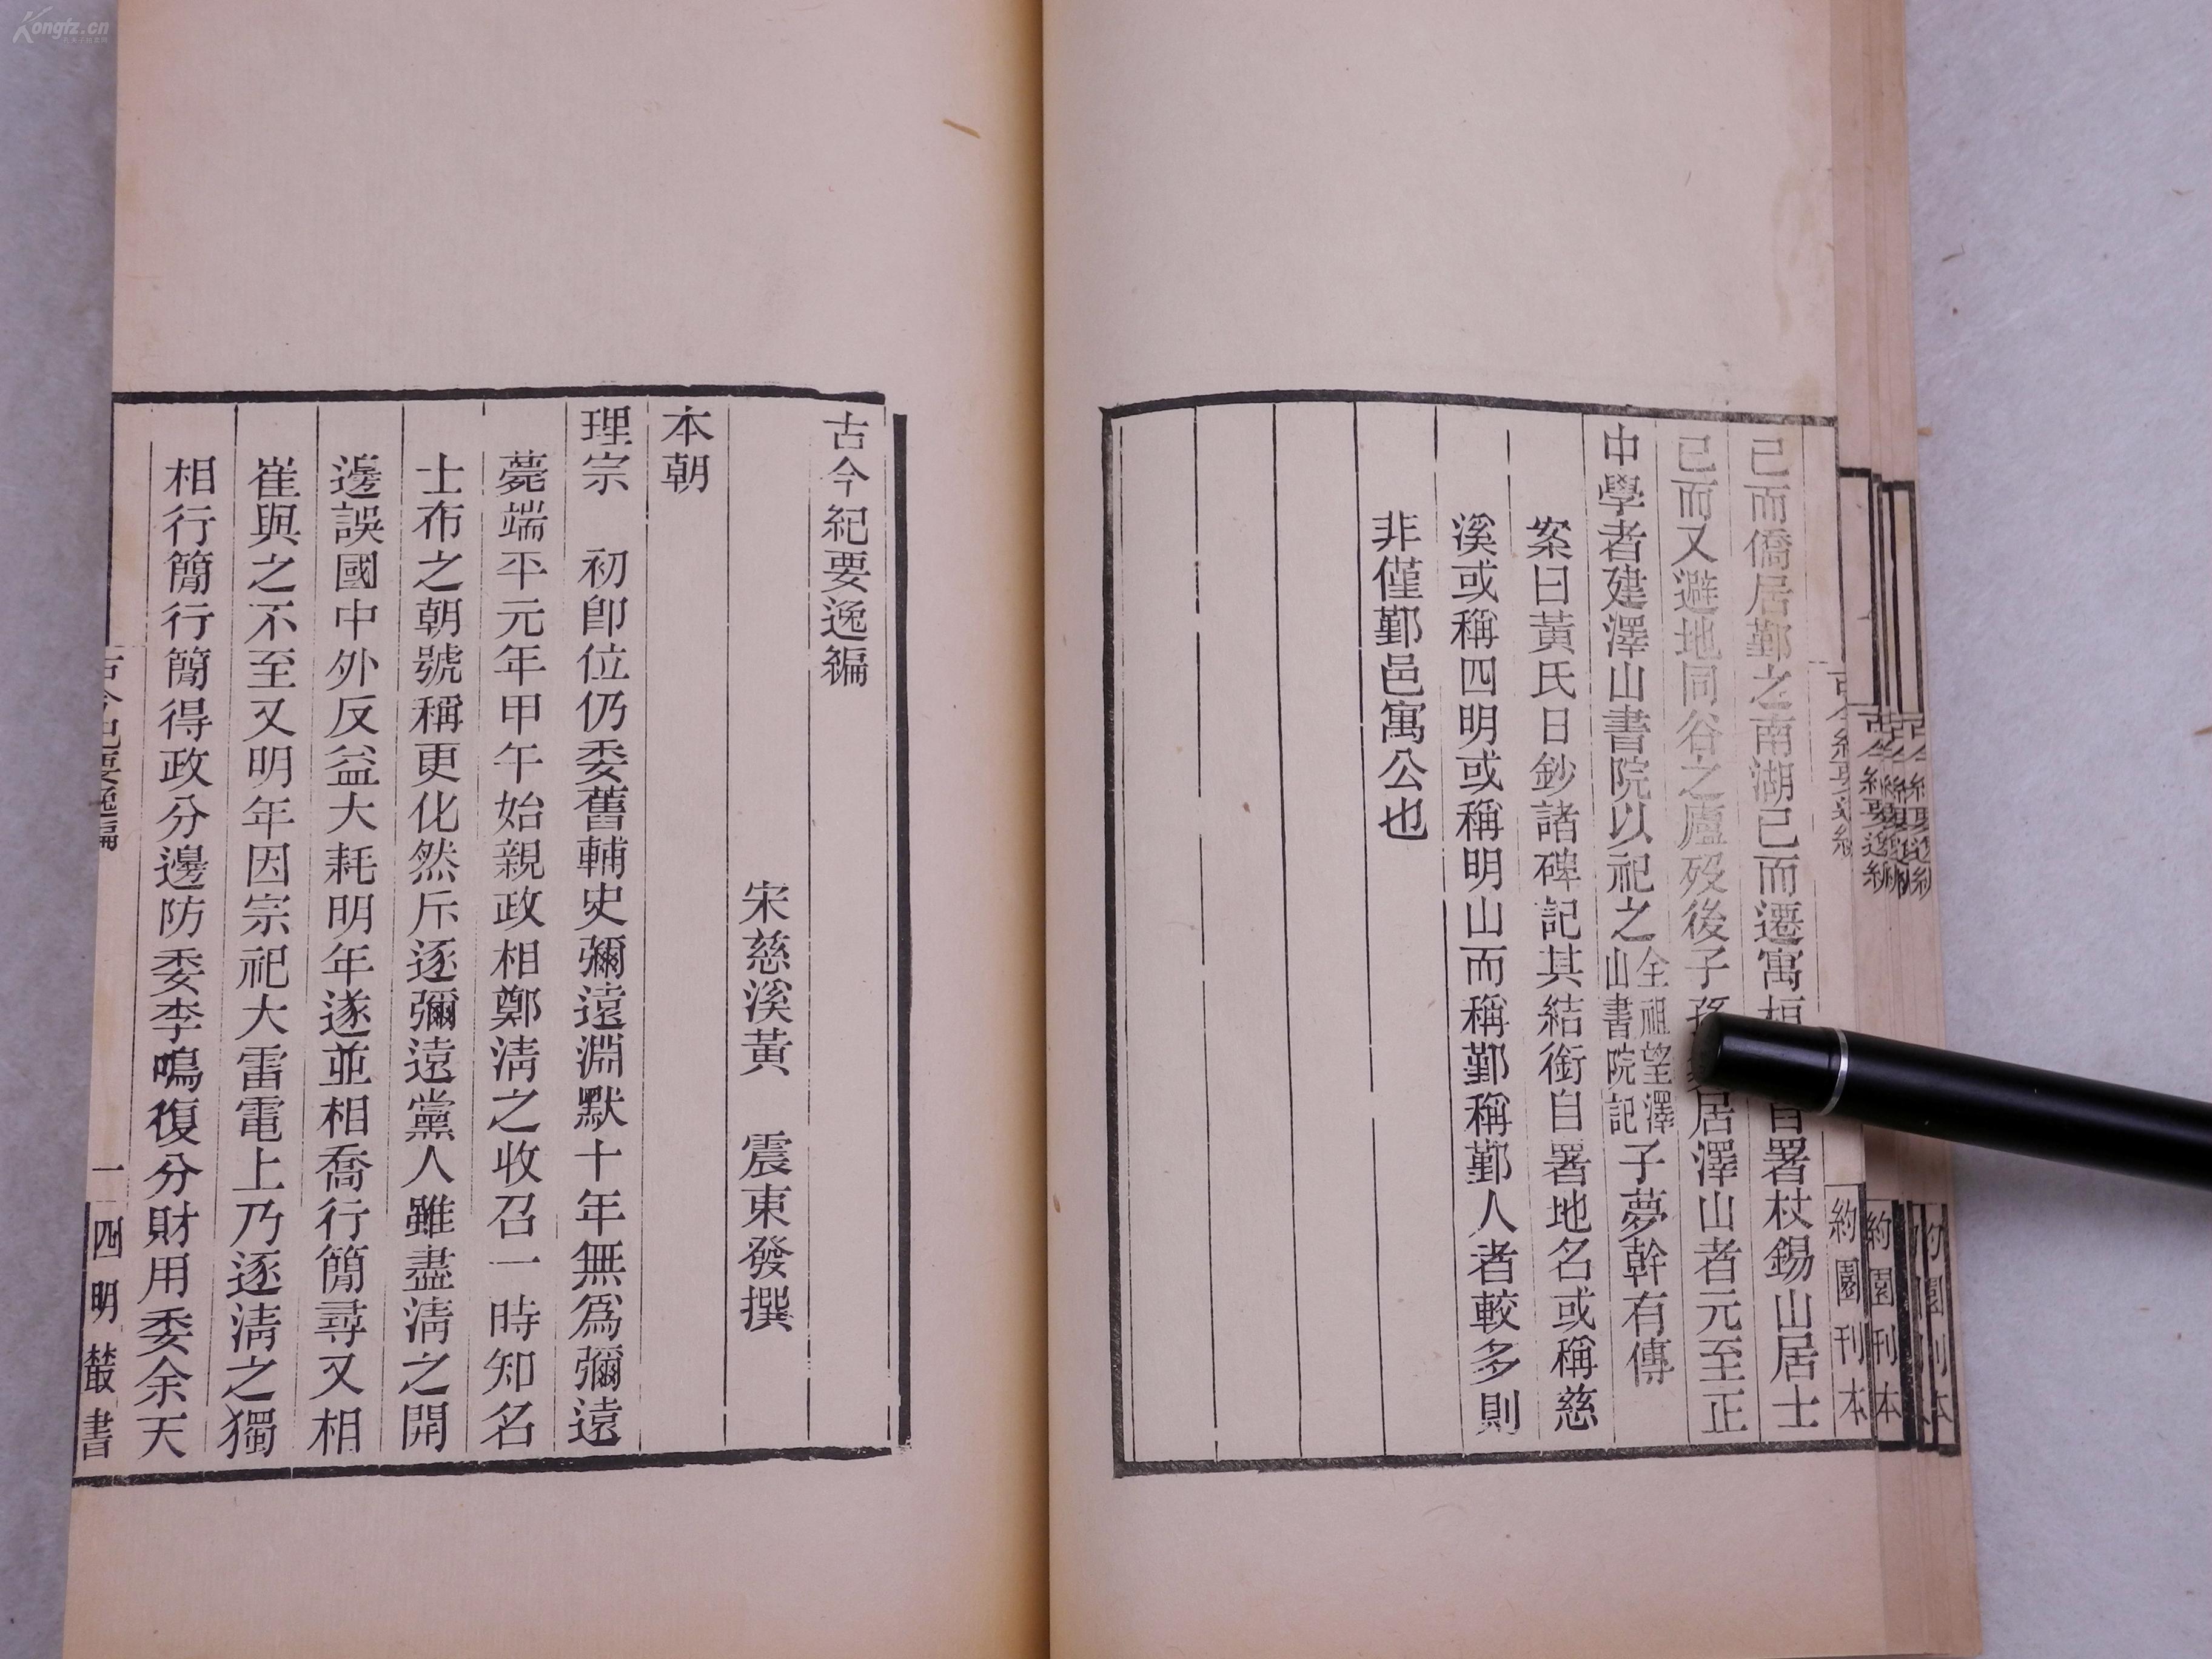 已而僑居鄞之南湖已而遷寓桓署杖錫山居士
已而又避地同谷之廬歿後子孫居澤山者元至正
中學者建澤山書院以祀之全祖望澤山書院記子夢幹有傳
案曰黃氏日鈔諸碑記其結銜自署地名或稱慈
溪或稱四明或稱明山而稱鄞稱鄞人者較多則
非僅鄞邑寓公也
古今紀要逸編
宋慈溪黃 震東發撰
本朝
理宗 初卽位仍委舊輔史彌遠淵默十年無爲彌遠
薨端平元年甲午始親政相鄭淸之收召一時知名
士布之朝號稱更化然斥逐彌遠黨人雖盡淸之開
邊誤國中外反益大耗明年遂並相喬行簡尋又相
崔與之不至又明年因宗祀大雷電上乃逐淸之獨
相行簡行簡得政分邊防委李鳴復分財用委余天
古今紀要逸編
一
四明叢書
約園刊本
約園刊本
Kongfz.cn